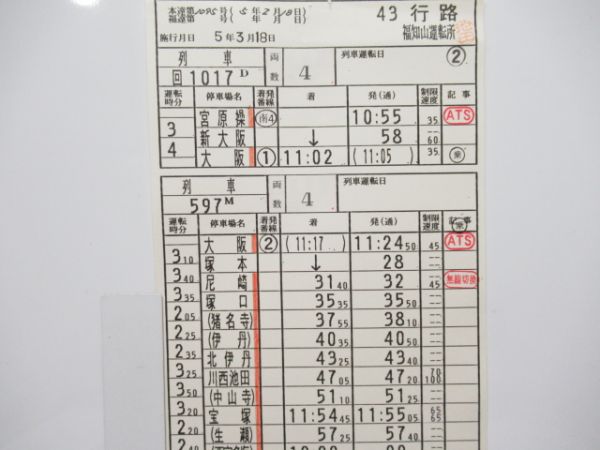 本達第1095号(5年2月18日) 43行路
福達第 号( 年 月 日) 福知山運転所
施行月日 5年3月18日 ②
列車 両数 4 列車運転日
回1017D
運転時分 停車場名 着発番線 着 発(通) 制限速度 記事
宮原操 南4 10:55 35 ATS
3 新大阪 ↓ 58 -- 60
4 大阪 ① 11:02 (11:05) 35 乗
列車 両数 4 列車運転日
597M
運転時分 停車場名 着発番線 着 発(通) 制限速度 記事
大阪 ② (11:17) 11:24 50 45 ATS
3 10 塚本 ↓ 28 --
3 40 尼崎 31 40 32 -- 45 無線切換
3 35 塚口 35 35 35 50 --
2 05 (猪名寺) 37 55 38 10 --
2 25 (伊丹) 40 35 40 50 --
2 35 北伊丹 43 25 43 40 --
3 25 川西池田 47 05 47 20 70 100
3 50 (中山寺) 51 10 51 25 --
3 20 宝塚 11:54 45 11:55 05 65 65
2 20 (生瀬) 57 25 57 40 --
2 40